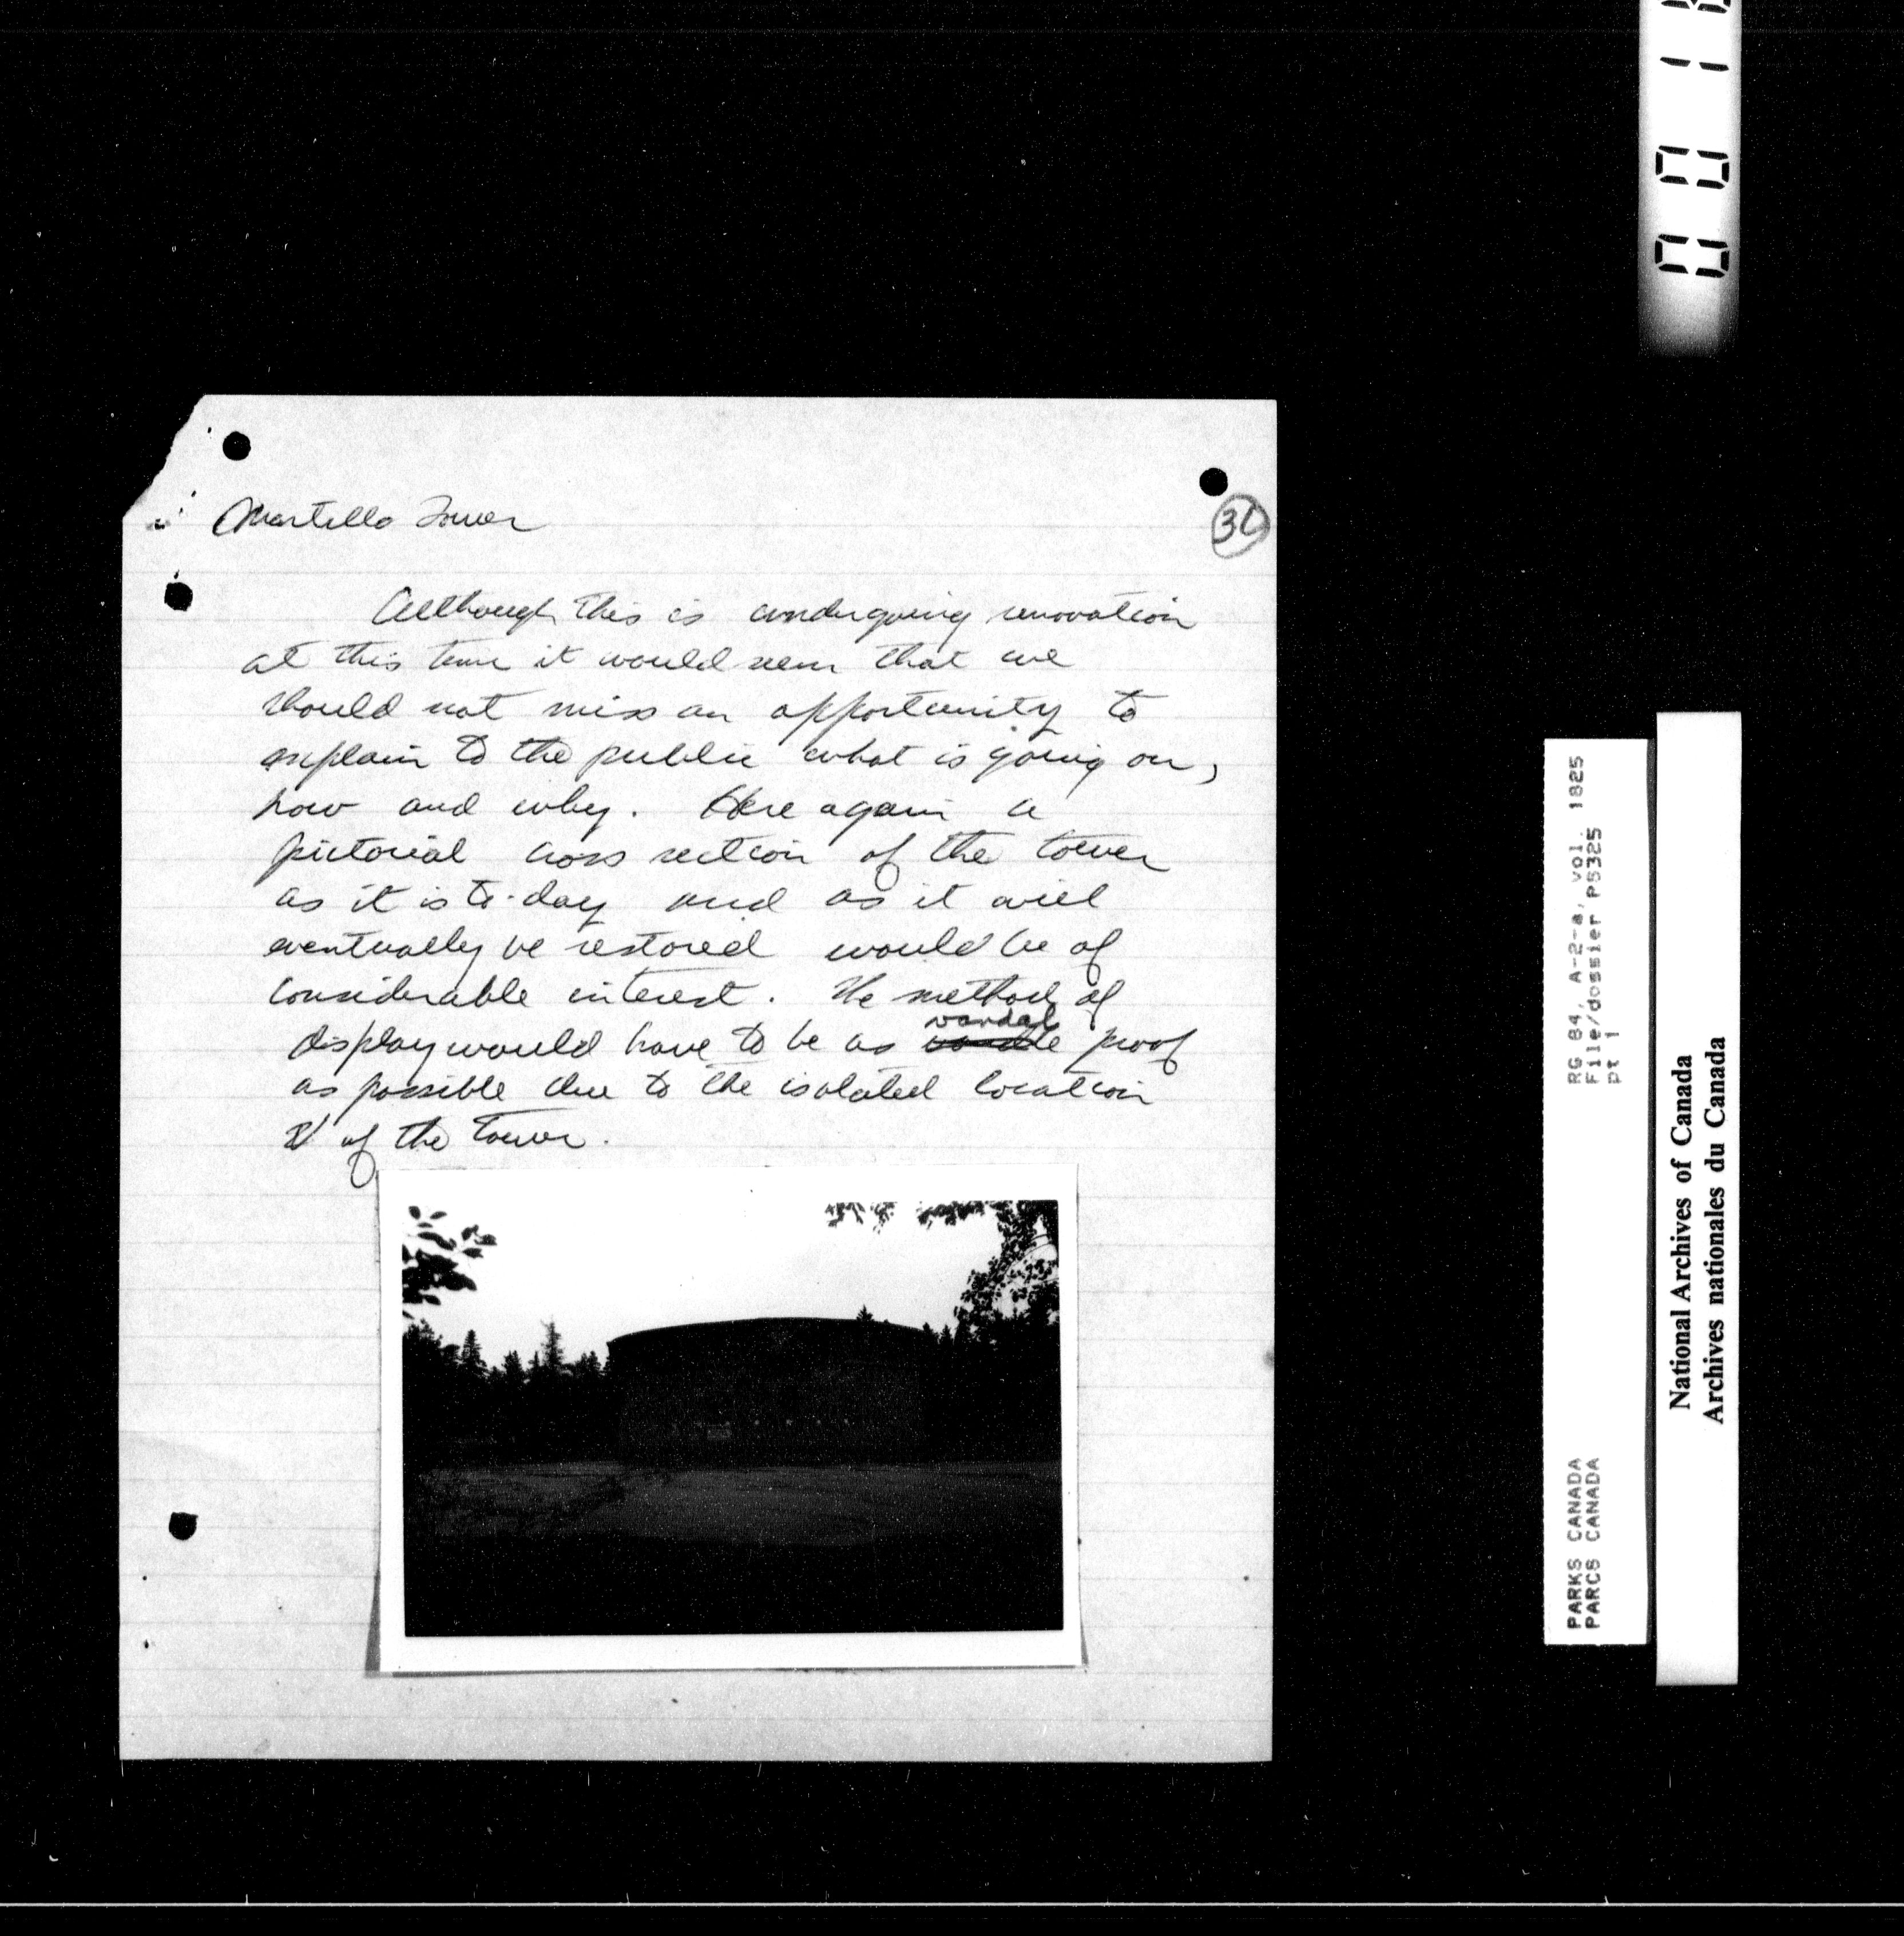 Martello Tower
Although this is undergoing renovation
at this time it would seem that we
should not miss an opportunity to
explain to the public what is going on,
how and why. Here again a
pictorial cross section of the tower
as it is to-day and as it will
eventually be restored would be of
considerable interest. The method of
vandal
display would have to be as proof
as possible due to the isolated location
of the tower.
RG 84, A-2-a, vol. 1825
File/dossier P5325
pt 1
PARKS CANADA
PARCS CANADA
National Archives of Canada
Archives nationales du Canada